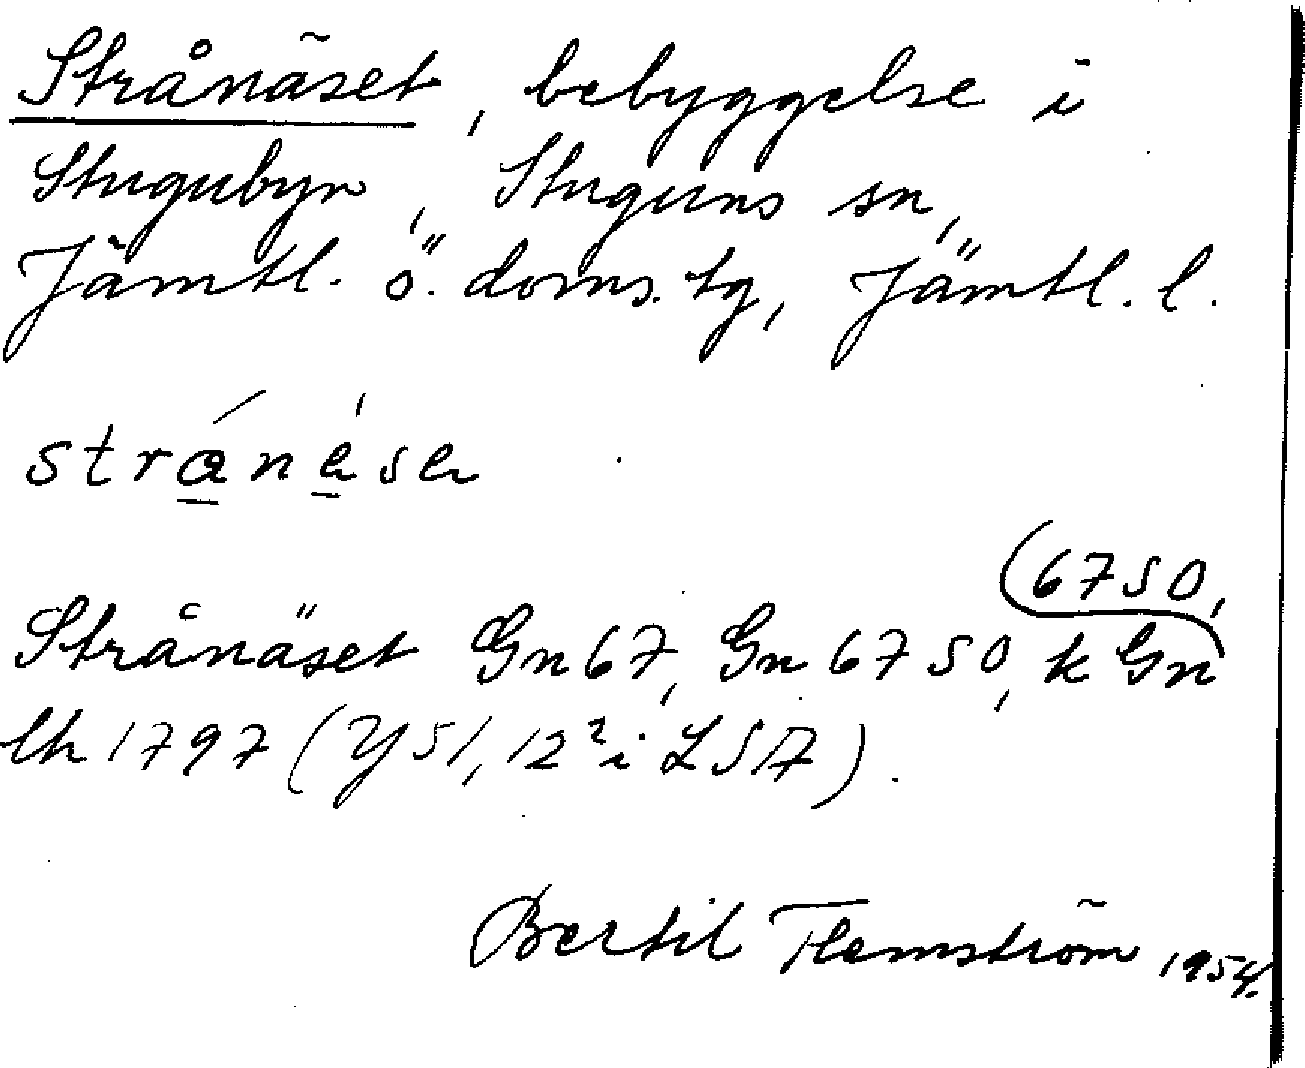 Strånäset, bebyggelse i
Stugubyn, Stuguns sn,
Jämtl. ö. doms. tg, Jämtl. l.
stránésa
(6750,
Strånäset Gn 67, Gn 6750, k Gn
lh 1797 (Y51, 12² i LSA).
Bertil Flemström 1954.